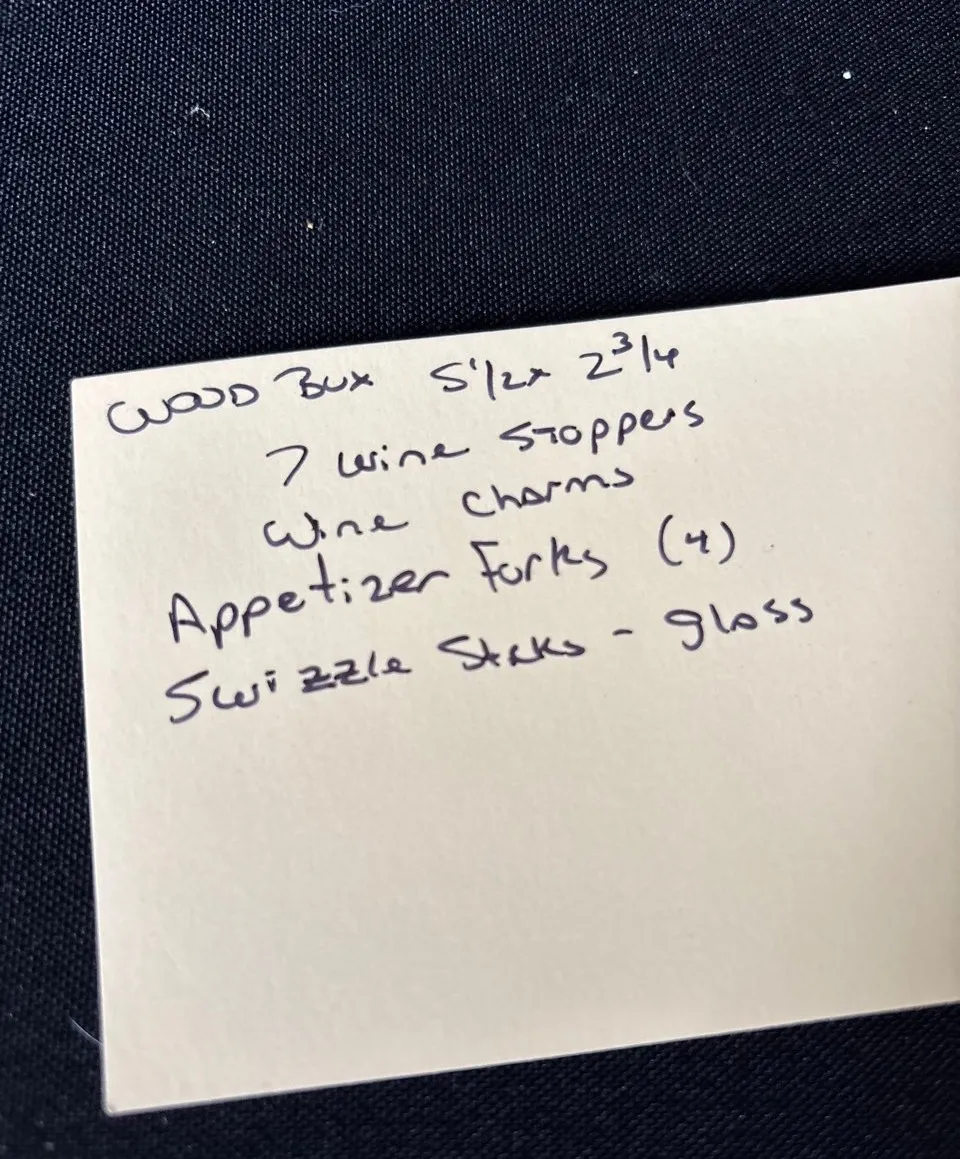 WOOD Box 5 1/2 x 2 3/4
7 wine Stoppers
Wine Charms
Appetizer Forks (4)
Swizzle Sticks - glass